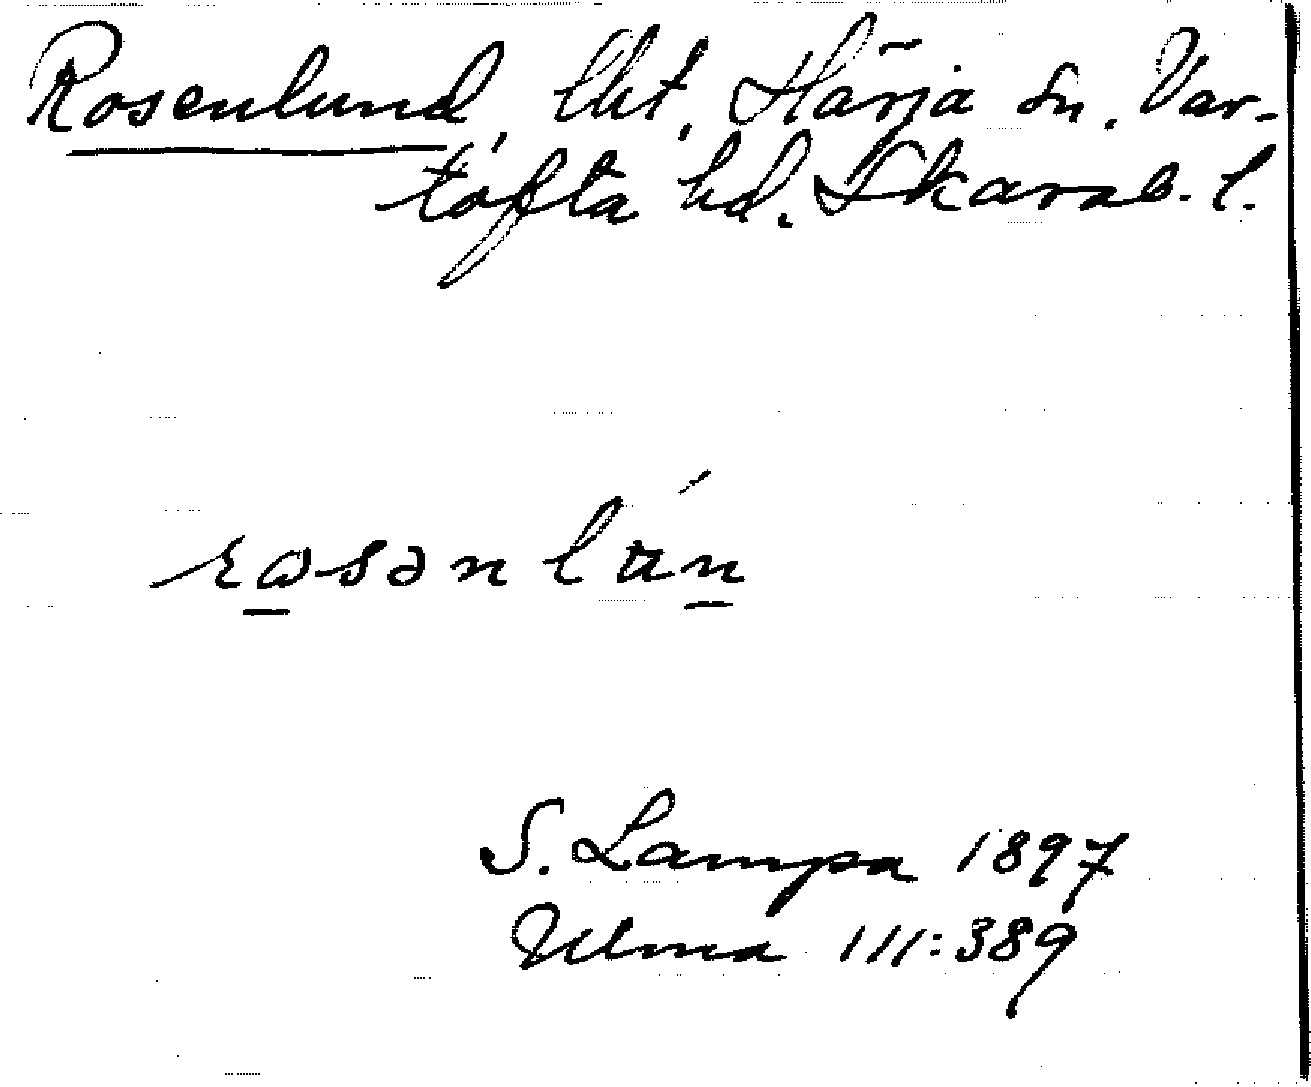 Rosenlund, lht, Härja sn. Var-
tofta hd. Skarab. l.
rosənlún
S. Lampa 1897
Ulma 111:389